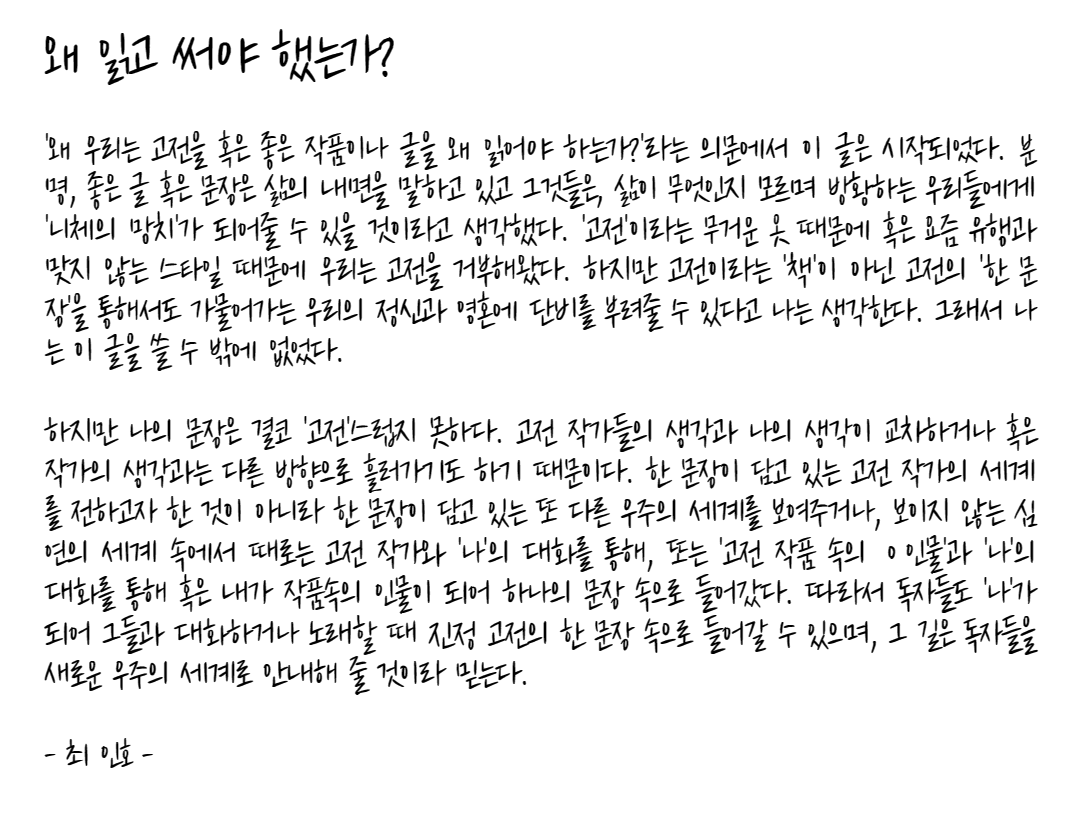 왜 읽고 써야 했는가?
'왜 우리는 고전을 혹은 좋은 작품이나 글을 왜 읽어야 하는가?'라는 의문에서 이 글은 시작되었다. 분
명, 좋은 글 혹은 문장은 삶의 내면을 말하고 있고 그것들은, 삶이 무엇인지 모르며 방황하는 우리들에게
'니체의 망치'가 되어줄 수 있을 것이라고 생각했다. '고전'이라는 무거운 옷 때문에 혹은 요즘 유행과
맞지 않는 스타일 때문에 우리는 고전을 거부해왔다. 하지만 고전이라는 '책'이 아닌 고전의 '한 문
장'을 통해서도 가물어가는 우리의 정신과 영혼에 단비를 부려줄 수 있다고 나는 생각한다. 그래서 나
는 이 글을 쓸 수 밖에 없었다.
하지만 나의 문장은 결코 '고전'스럽지 못하다. 고전 작가들의 생각과 나의 생각이 교차하거나 혹은
작가의 생각과는 다른 방향으로 흘러가기도 하기 때문이다. 한 문장이 담고 있는 고전 작가의 세계
를 전하고자 한 것이 아니라 한 문장이 담고 있는 또 다른 우주의 세계를 보여주거나, 보이지 않는 심
연의 세계 속에서 때로는 고전 작가와 '나'의 대화를 통해, 또는 '고전 작품 속의 ㅇ인물'과 '나'의
대화를 통해 혹은 내가 작품속의 인물이 되어 하나의 문장 속으로 들어갔다. 따라서 독자들도 '나'가
되어 그들과 대화하거나 노래할 때 진정 고전의 한 문장 속으로 들어갈 수 있으며, 그 길은 독자들을
새로운 우주의 세계로 안내해 줄 것이라 믿는다.
- 최 인호 -